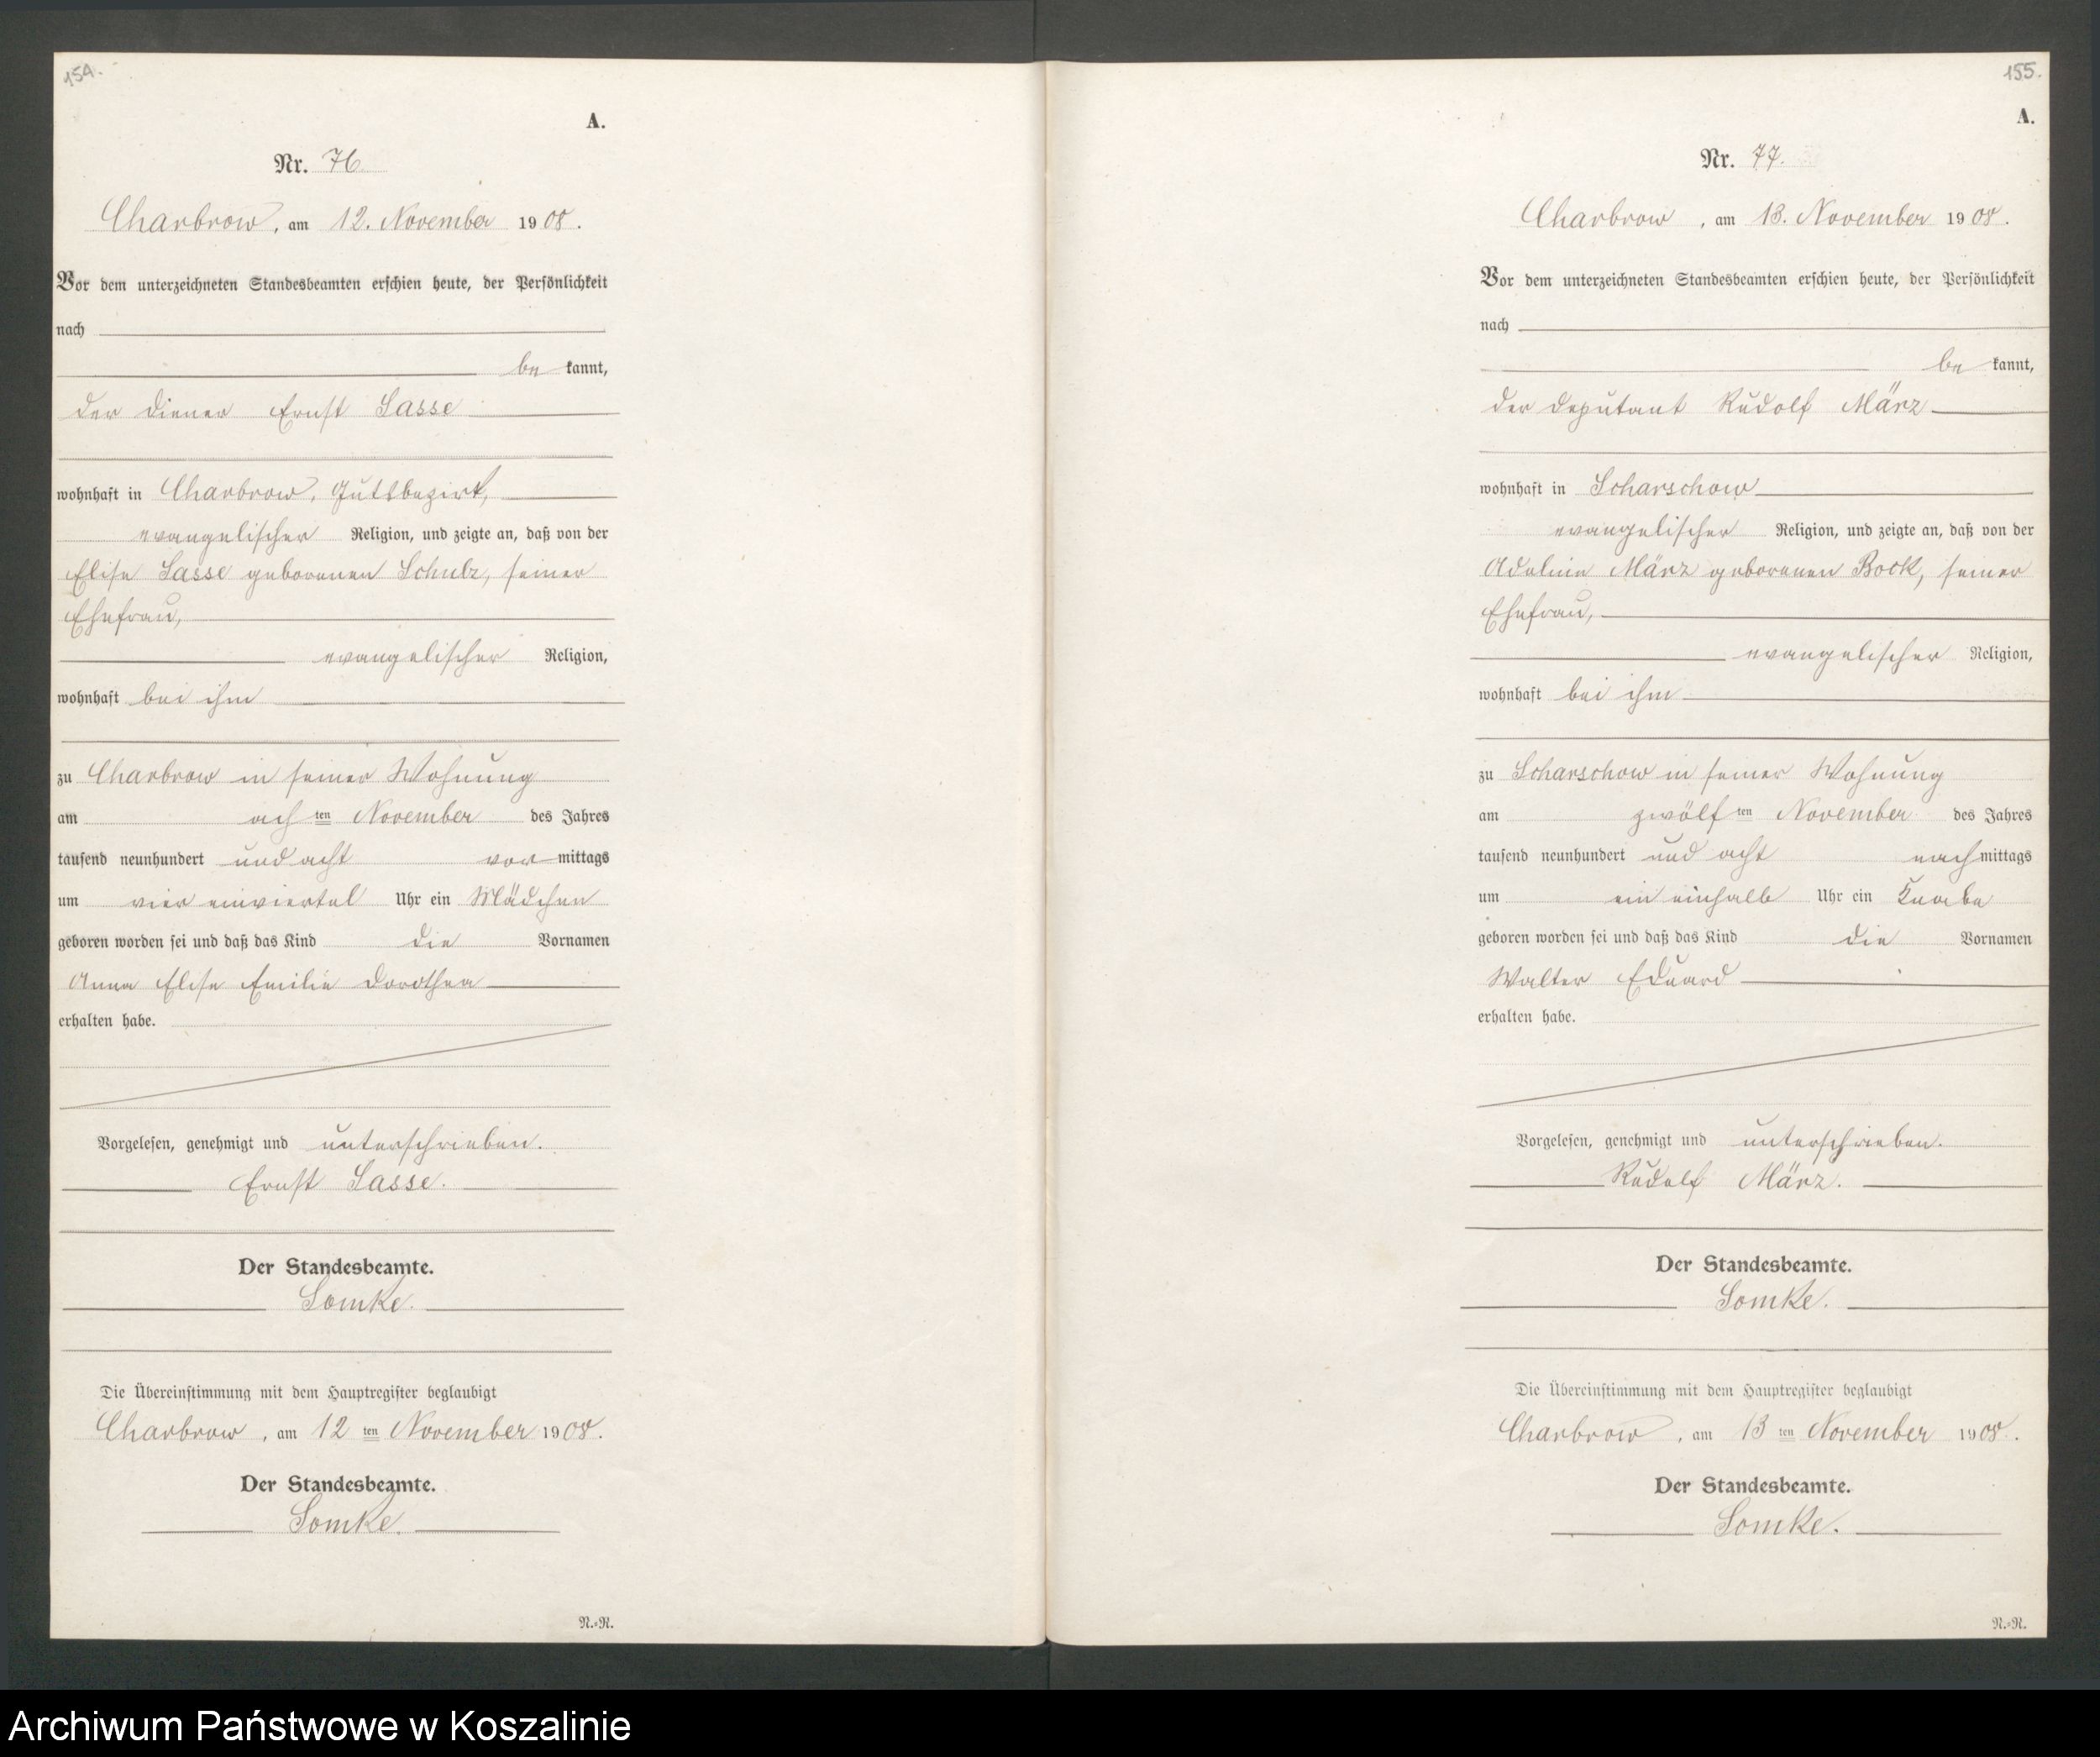 154.
A.
Nr. 76
Charbrow, am 12. November 1908.
Vor dem unterzeichneten Standesbeamten erschien heute, der Persönlichkeit
nach
be kannt,
der Diener Ernst Sasse
wohnhaft in Charbrow, Gutsbezirk,
evangelischer Religion, und zeigte an, daß von der
Elise Sasse geborenen Schulz, seiner
Ehefrau,
evangelischer Religion,
wohnhaft bei ihm
zu Charbrow in seiner Wohnung
am ach ten November des Jahres
tausend neunhundert und acht vor mittags
um vier einviertel Uhr ein Mädchen
geboren worden sei und daß das Kind die Vornamen
Anna Elise Emilie Dorothea
erhalten habe.
Vorgelesen, genehmigt und unterschrieben.
Ernst Sasse.
Der Standesbeamte.
Somke.
Die Übereinstimmung mit dem Hauptregister beglaubigt
Charbrow, am 12 ten November 1908.
Der Standesbeamte.
Somke.
N.=R.
155.
A.
Nr. 77.
Charbrow, am 13. November 1908.
Vor dem unterzeichneten Standesbeamten erschien heute, der Persönlichkeit
nach
be kannt,
der Deputant Rudolf März
wohnhaft in Scharschow
evangelischer Religion, und zeigte an, daß von der
Adeline März geborenen Bock, seiner
Ehefrau,
evangelischer Religion,
wohnhaft bei ihm
zu Scharschow in seiner Wohnung
am zwölf ten November des Jahres
tausend neunhundert und acht nach mittags
um ein einhalb Uhr ein Knabe
geboren worden sei und daß das Kind die Vornamen
Walter Eduard
erhalten habe.
Vorgelesen, genehmigt und unterschrieben.
Rudolf März.
Der Standesbeamte.
Somke.
Die Übereinstimmung mit dem Hauptregister beglaubigt
Charbrow, am 13 ten November 1908.
Der Standesbeamte.
Somke.
N.=R.
Archiwum Państwowe w Koszalinie